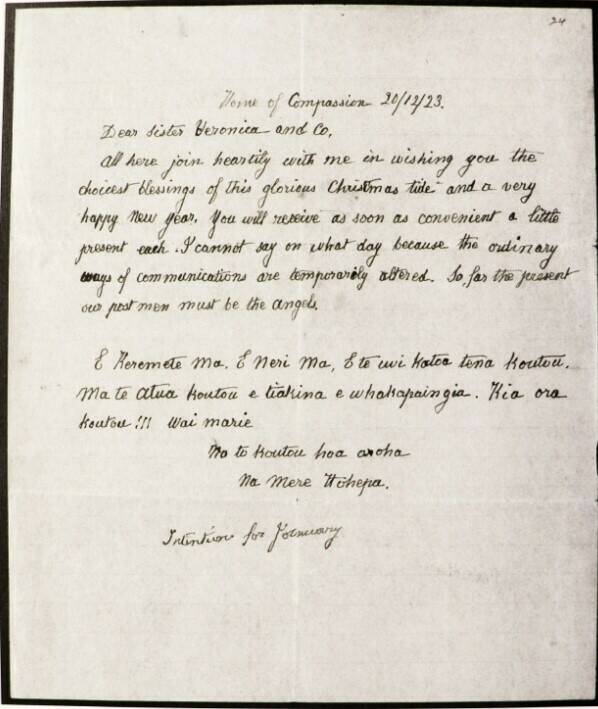 24
Home of Compassion 20/12/23.
Dear Sister Veronica and Co,
All here join heartily with me in wishing you the
choicest blessings of this glorious Christmas tide and a very
happy New Year. You will receive as soon as convenient a little
present each. I cannot say on what day because the ordinary
ways of communications are temporarily altered. So, for the present
our post men must be the angels.
E Keromete Ma. E Neri Ma, E te uvi katoa tena koutou.
Ma te Atua koutou e tiakina e whakapaingia. Kia ora
koutou!!! Wai marie
Na to koutou hoa aroha
Na Mere Hohepa.
Intention for January